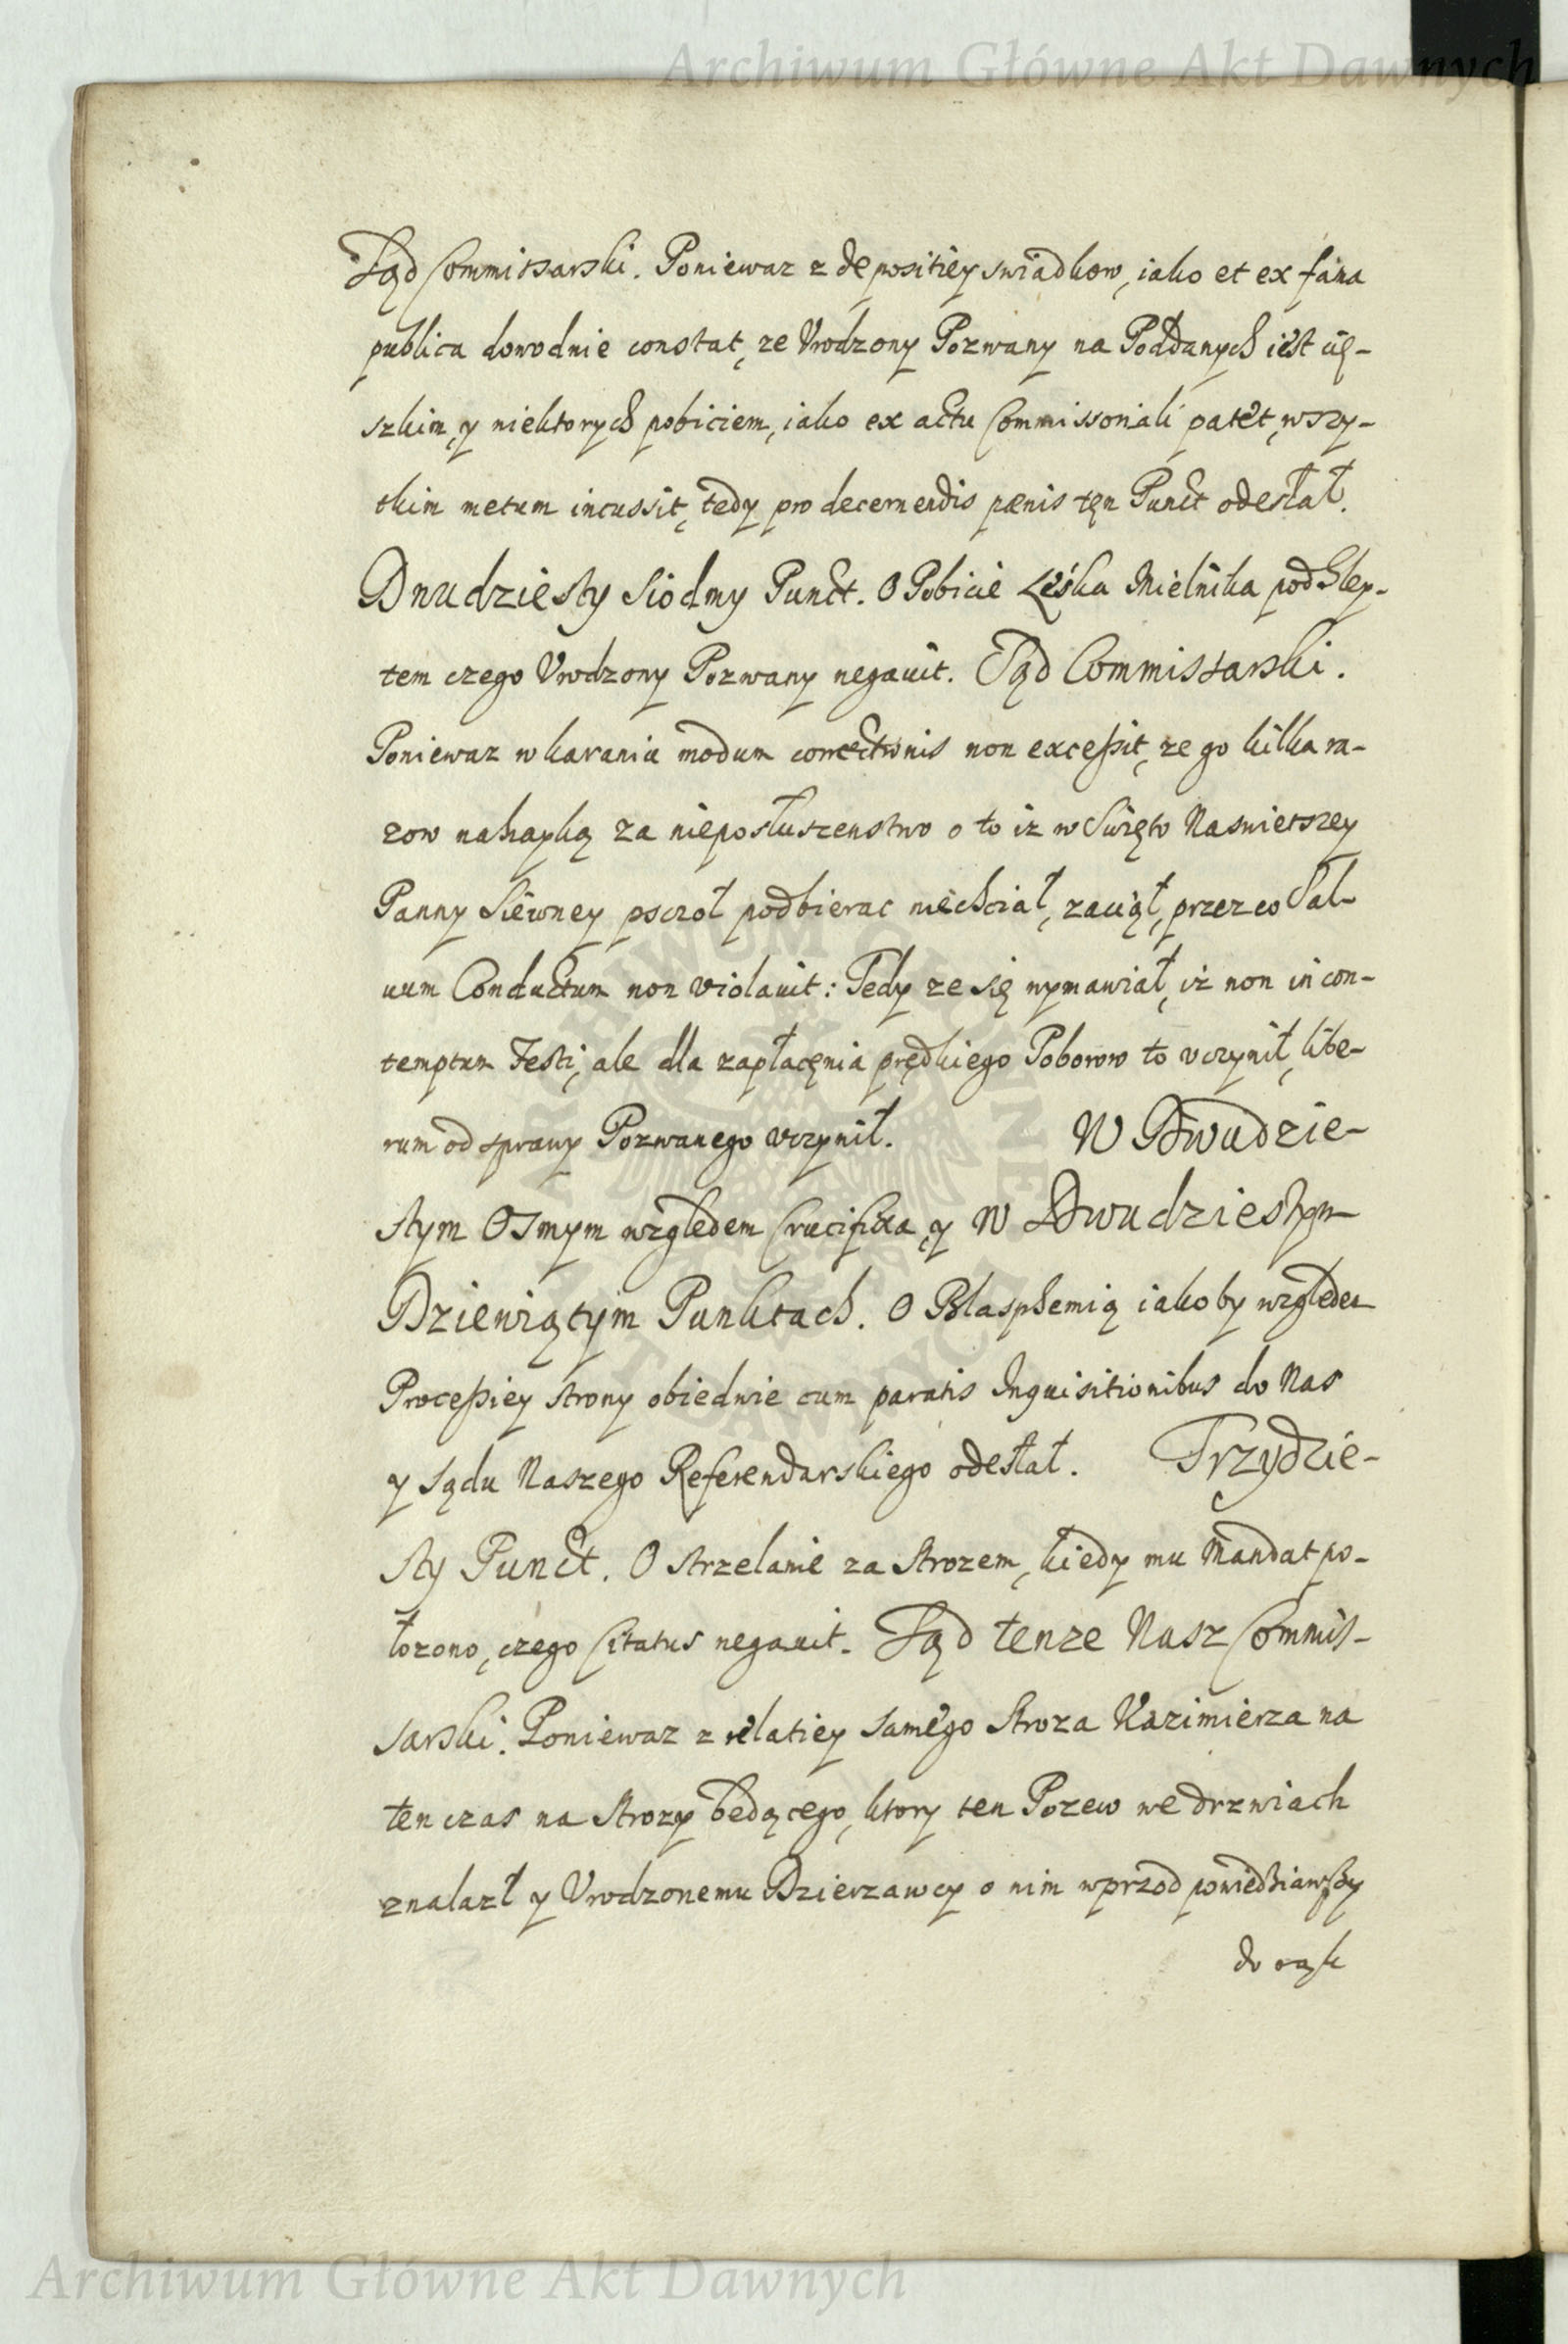 Archiwum Główne Akt Dawnych
Sąd Commissarski. Poniewaz z depositiey swiadkow, iako et ex fama
publica dowodnie constat, ze Vrodzony Pozwany na Poddanych iest cię-
szkim, y niektorych pobiciem, iako ex actu Commissoriali patet, wszy-
tkim metum incussit, tedy pro decernendis pænis tęn Punct odesłał.
Dwudziesty Siodmy Punct. O Pobicie Leśka Mielnika pod Slep-
tem czego Vrodzony Pozwany negauit. Sąd Commissarski.
Poniewaz w karaniu modum correctionis non excessit, ze go kilka ra-
zow nahayką za nieposłuszenstwo o to iz w Swięto Naswietszey
Panny Siewney psczoł podbierac niechciał, zaciął, przez co Sal-
uum Conductum non violauit: Tedy ze się wymawiał, iż non in con-
temptum Festi, ale dla zapłacęnia prędkiego Poborow to vczynił, libe-
rum od sprawy Pozwanego vczynił. W Dwudzie-
stym Osmym względem Crucifixa, y w Dwudziestym
Dziewiątym Punktach. O Blasphemią iakoby względem
Processiey strony obiedwie cum paratis Inquisitionibus do Nas
y Sądu Naszego Referendarskiego odesłał. Trzydzie-
sty Punct. O strzelanie za Strozem, kiedy mu Mandat po-
łozono, czego Citatus negauit. Sąd tenze Nasz Commis-
sarski. Poniewaz z relatiey samego Stroza Kazimierza na
ten czas na Strozy będącego, ktory ten Pozew we drzwiach
znalazł y Vrodzonemu Dzierzawcy o nim wprzod powiedziawszy
do rąk
Archiwum Główne Akt Dawnych